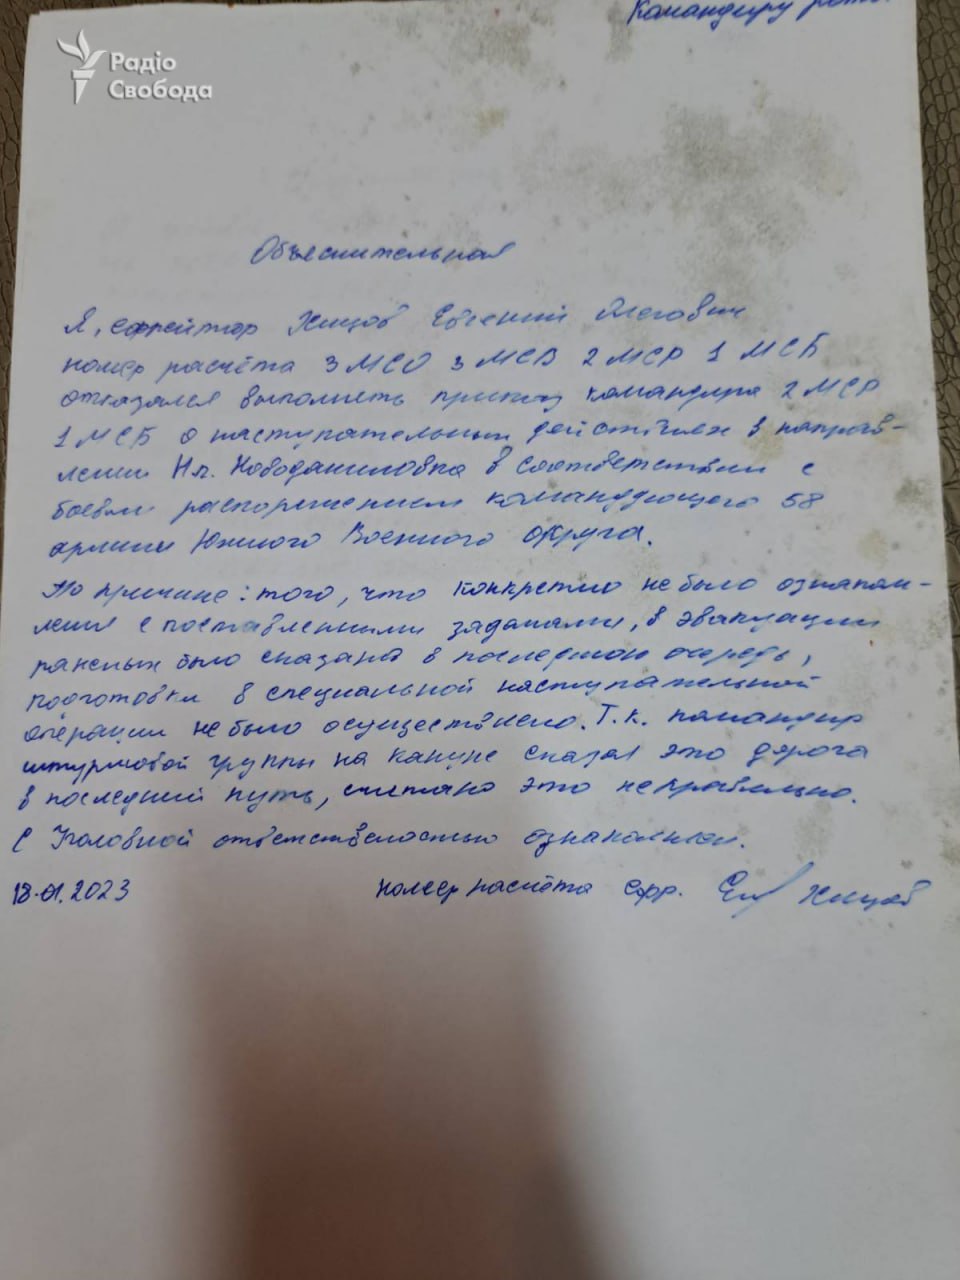 Командиру роты
Радіо
Свобода
Объеснительная
Я, ефрейтор Хицов Евгений Олегович
номер расчёта 3 МСО 3 МСВ 2 МСР 1 МСБ
отказался выполнять приказ командира 2 МСР
1 МСБ о наступательных действиях в направ-
лении Нп. Новоданиловка в соответствии с
боевым распоряжением командующего 58
армии Южного Военного округа.
По причине: того, что конкретно не было ознаком-
ления с поставленными задачами, в эвакуации
раненых было сказано в последнюю очередь,
подготовки в специальной наступательной
операции не было осуществлено. Т.к. командир
штурмовой группы на кануне сказал это дорога
в последний путь, считаю это неправильно.
С Уголовной ответственостью ознакомлен.
18.01.2023 номер расчёта ефр. Хицов